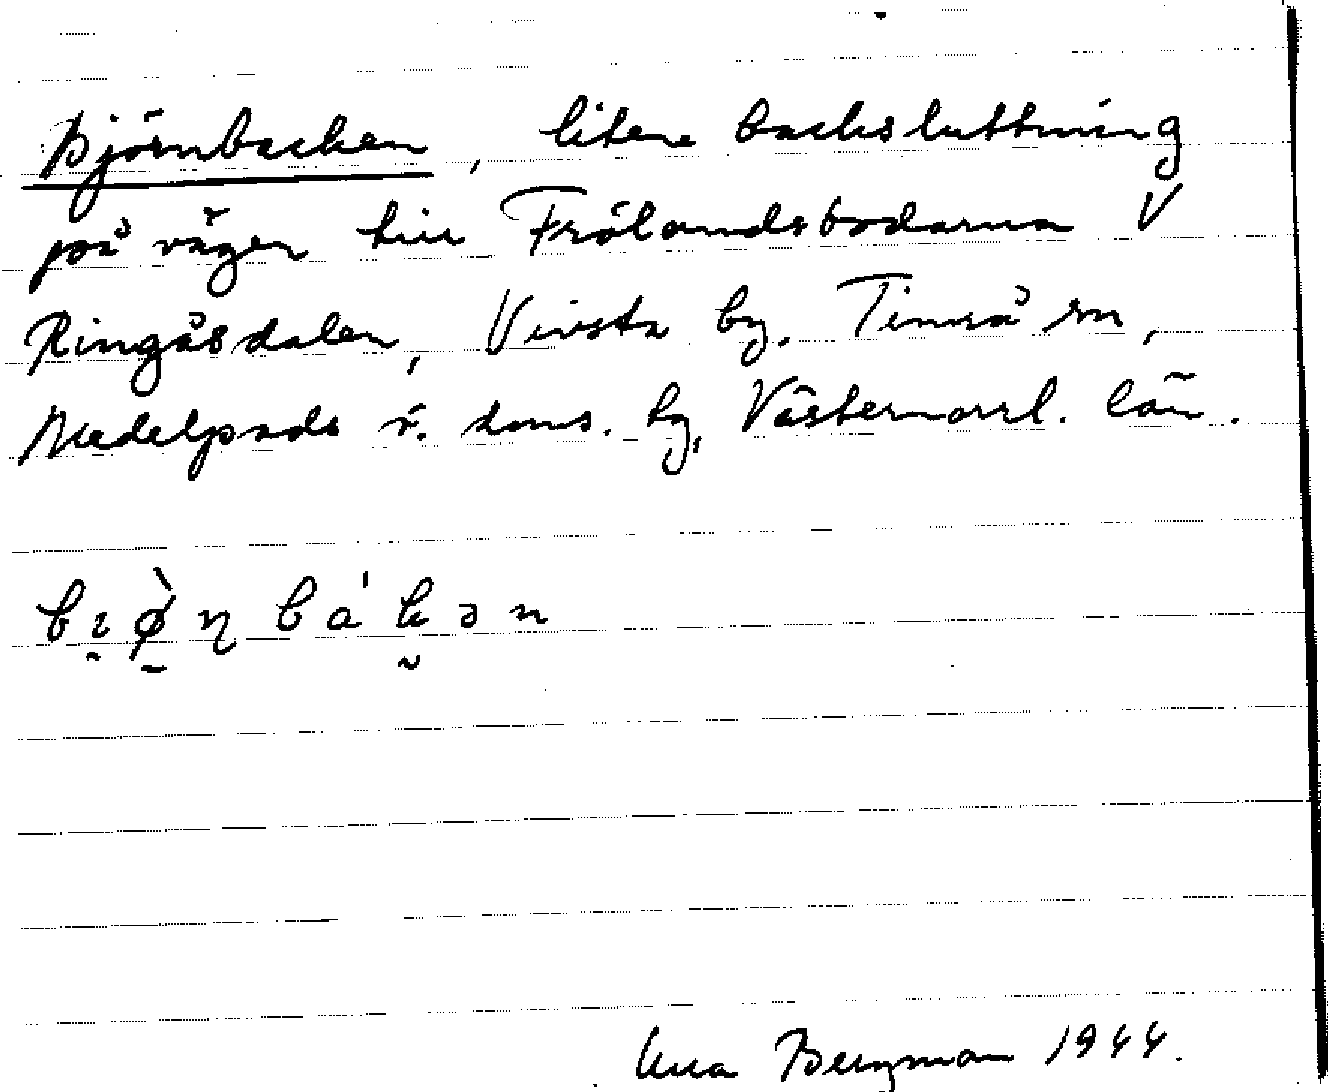 Björnbacken, liten backsluttning
på vägen till Frölandsbodarna V
Ringåsdalen, Vivsta by. Timrå sn,
Medelpads v. doms. hg, Västernorrl. län.
bɩø̀ɳbákən
Bergman 1944.